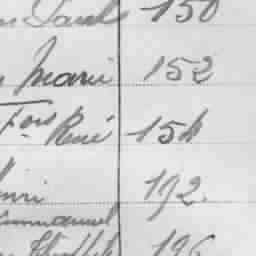 Paul 150
Marie 152
Fois René 154
Henri 192.
Emmanuel
196